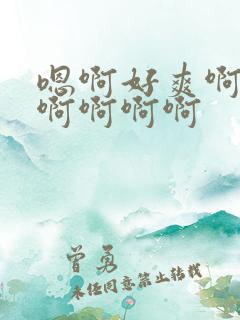 嗯啊好爽啊
啊啊啊啊
曾勇
未经同意禁止转载